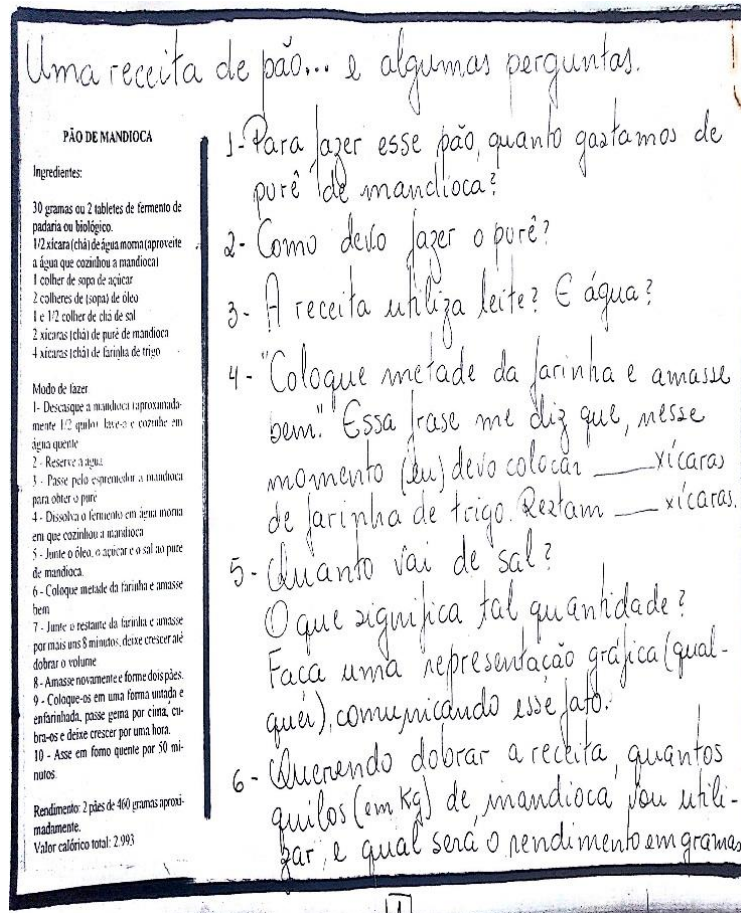 Uma receita de pão... e algumas perguntas.
PÃO DE MANDIOCA
Ingredientes:
30 gramas ou 2 tabletes de fermento de
padaria ou biológico.
1/2 xícara (chá) de água morna (aproveite
a água que cozinhou a mandioca)
1 colher de sopa de açúcar
2 colheres de (sopa) de óleo
1 e 1/2 colher de chá de sal
2 xícaras (chá) de purê de mandioca
4 xícaras (chá) de farinha de trigo
Modo de fazer
1- Descasque a mandioca (aproximada-
mente 1/2 quilo), lave-a e cozinhe em
água quente
2 - Reserve a água
3 - Passe pelo espremedor a mandioca
para obter o purê
4 - Dissolva o fermento em água morna
em que cozinhou a mandioca
5 - Junte o óleo, o açúcar e o sal ao purê
de mandioca.
6 - Coloque metade da farinha e amasse
bem
7 - Junte o restante da farinha e amasse
por mais uns 8 minutos, deixe crescer até
dobrar o volume
8 - Amasse novamente e forme dois pães.
9 - Coloque-os em uma forma untada e
enfarinhada, passe gema por cima, cu-
bra-os e deixe crescer por uma hora.
10 - Asse em forno quente por 50 mi-
nutos.
Rendimento: 2 pães de 460 gramas aproxi-
madamente.
Valor calórico total: 2.993
1- Para fazer esse pão, quanto gastamos de
purê de mandioca?
2- Como devo fazer o purê?
3- A receita utiliza leite? E água?
4- "Coloque metade da farinha e amasse
bem." Essa frase me diz que, nesse
momento (eu) devo colocar ____ xícaras
de farinha de trigo. Restam ____ xícaras.
5- Quanto vai de sal?
O que significa tal quantidade?
Faca uma representação gráfica (qual-
quer), comunicando esse fato.
6- Querendo dobrar a receita, quantos
quilos (em Kg) de mandioca vou utili-
zar, e qual será o rendimento em gramas
1